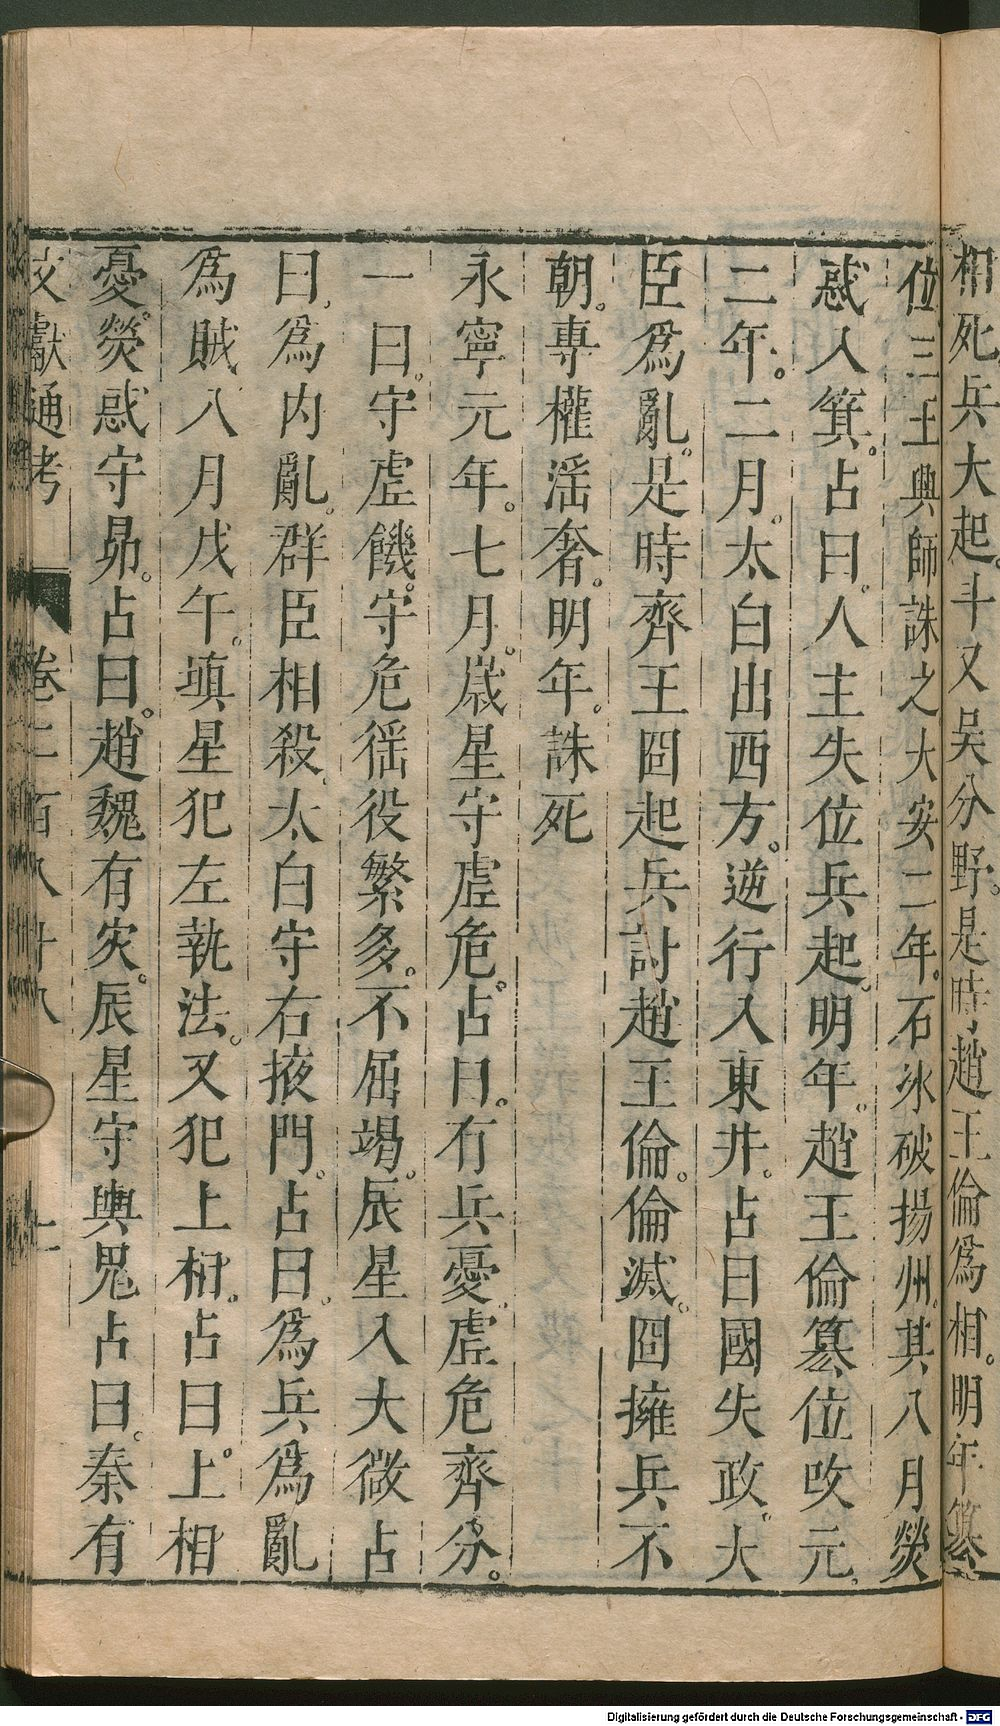 相死兵大起。斗又吳分野。是時趙王倫爲相。明年篡
位三王興師誅之大安二年。石氷破揚州。其八月熒
惑入箕。占曰。人主失位兵起。明年。趙王倫篡位改元。
二年。二月。太白出西方。逆行入東井。占曰國失政。大
臣爲亂。是時齊王冏起兵討趙王倫。倫滅。冏擁兵不
朝。專權滛奢。明年。誅死
永寧元年。七月。歲星守虛危。占曰。有兵憂。虛危齊分。
一曰。守虛饑。守危徭役繁多。不屈竭。辰星入大微占
曰。爲內亂。群臣相殺。太白守右掖門。占曰。爲兵爲亂
爲賊八月戊午。塡星犯左執法。又犯上相。占曰。上相
憂。熒惑守昴。占曰。趙魏有灾。辰星守輿鬼占曰。秦有
文獻通考
卷二百八十八
七
Digitalisierung gefördert durch die Deutsche Forschungsgemeinschaft - DFG